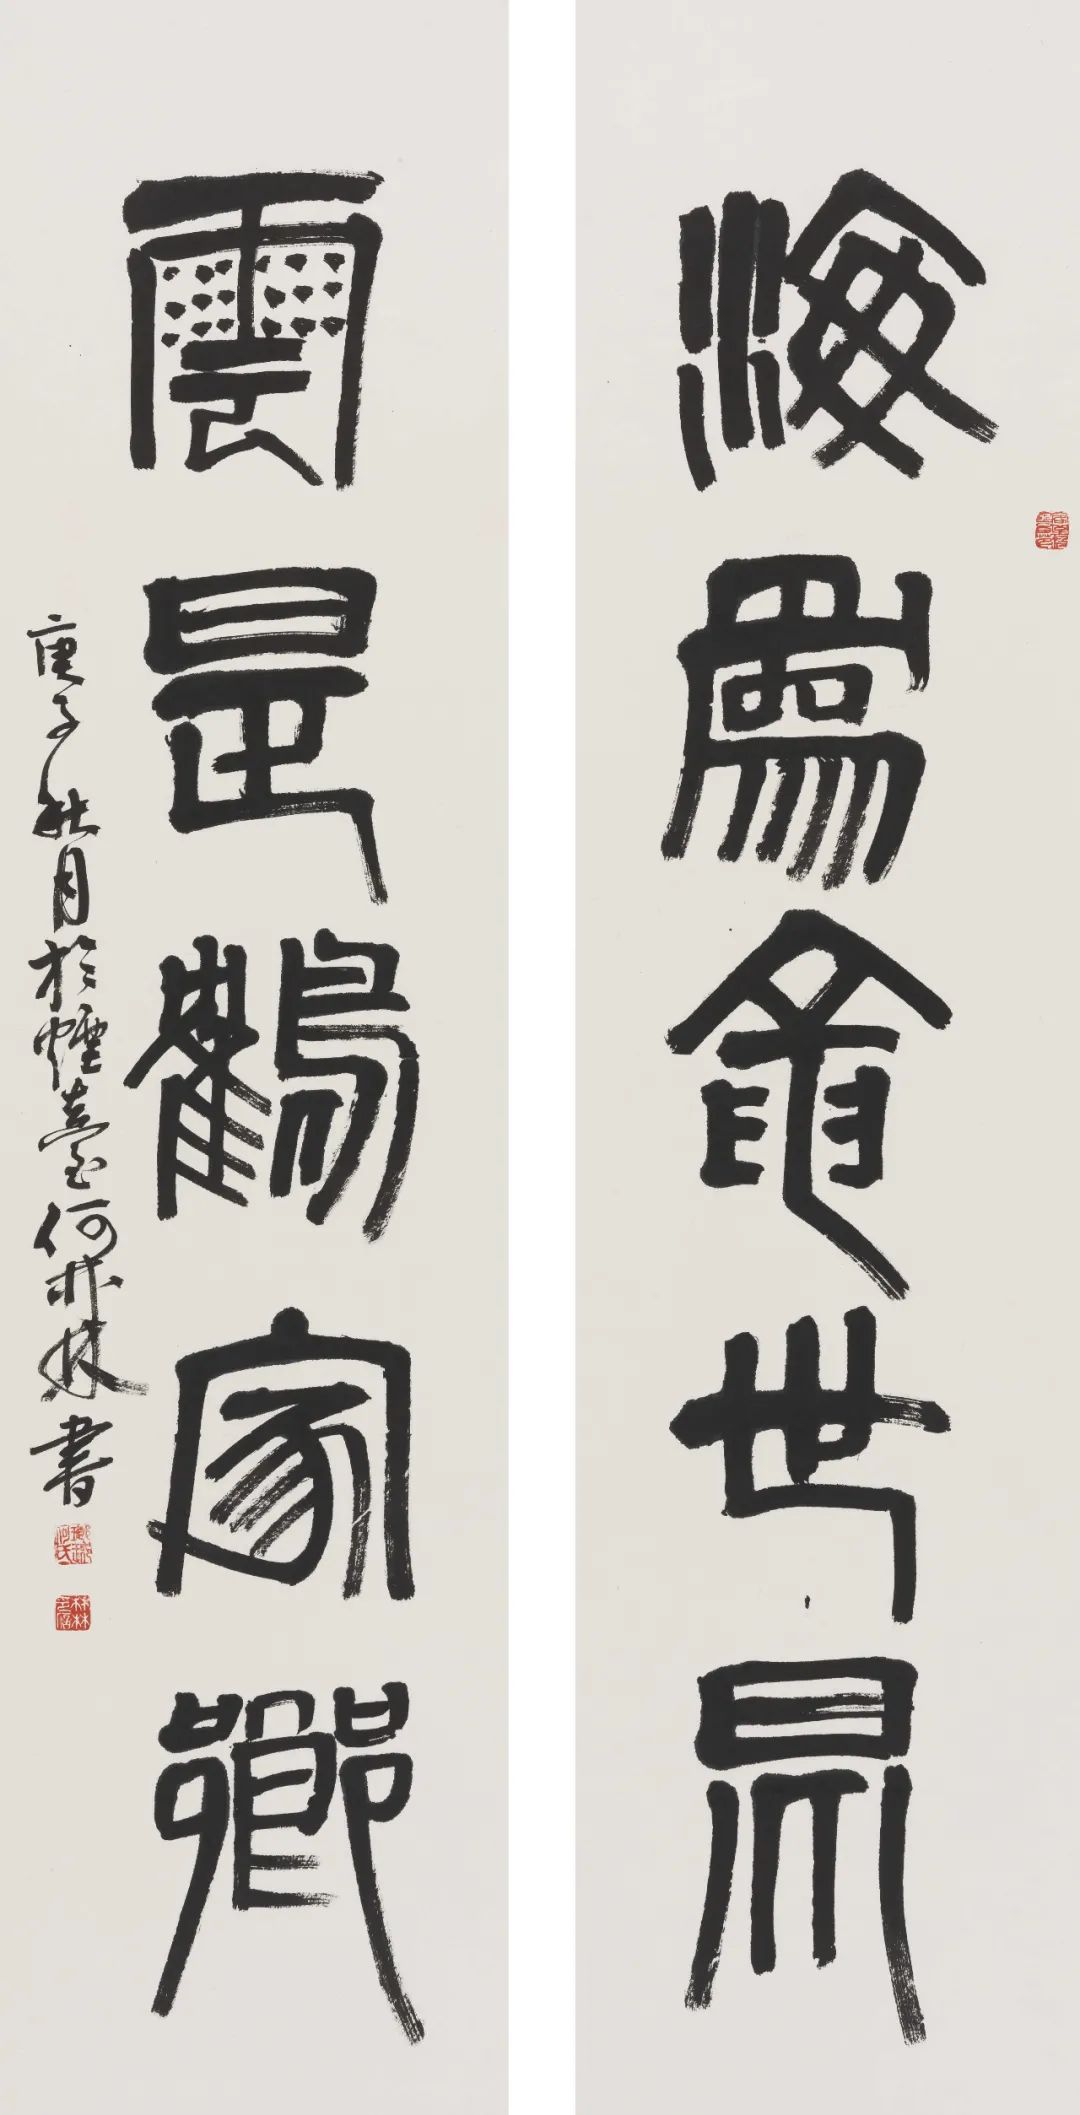 海為龍世界
雲是鶴家鄉
庚子秋月於煙臺何林林書